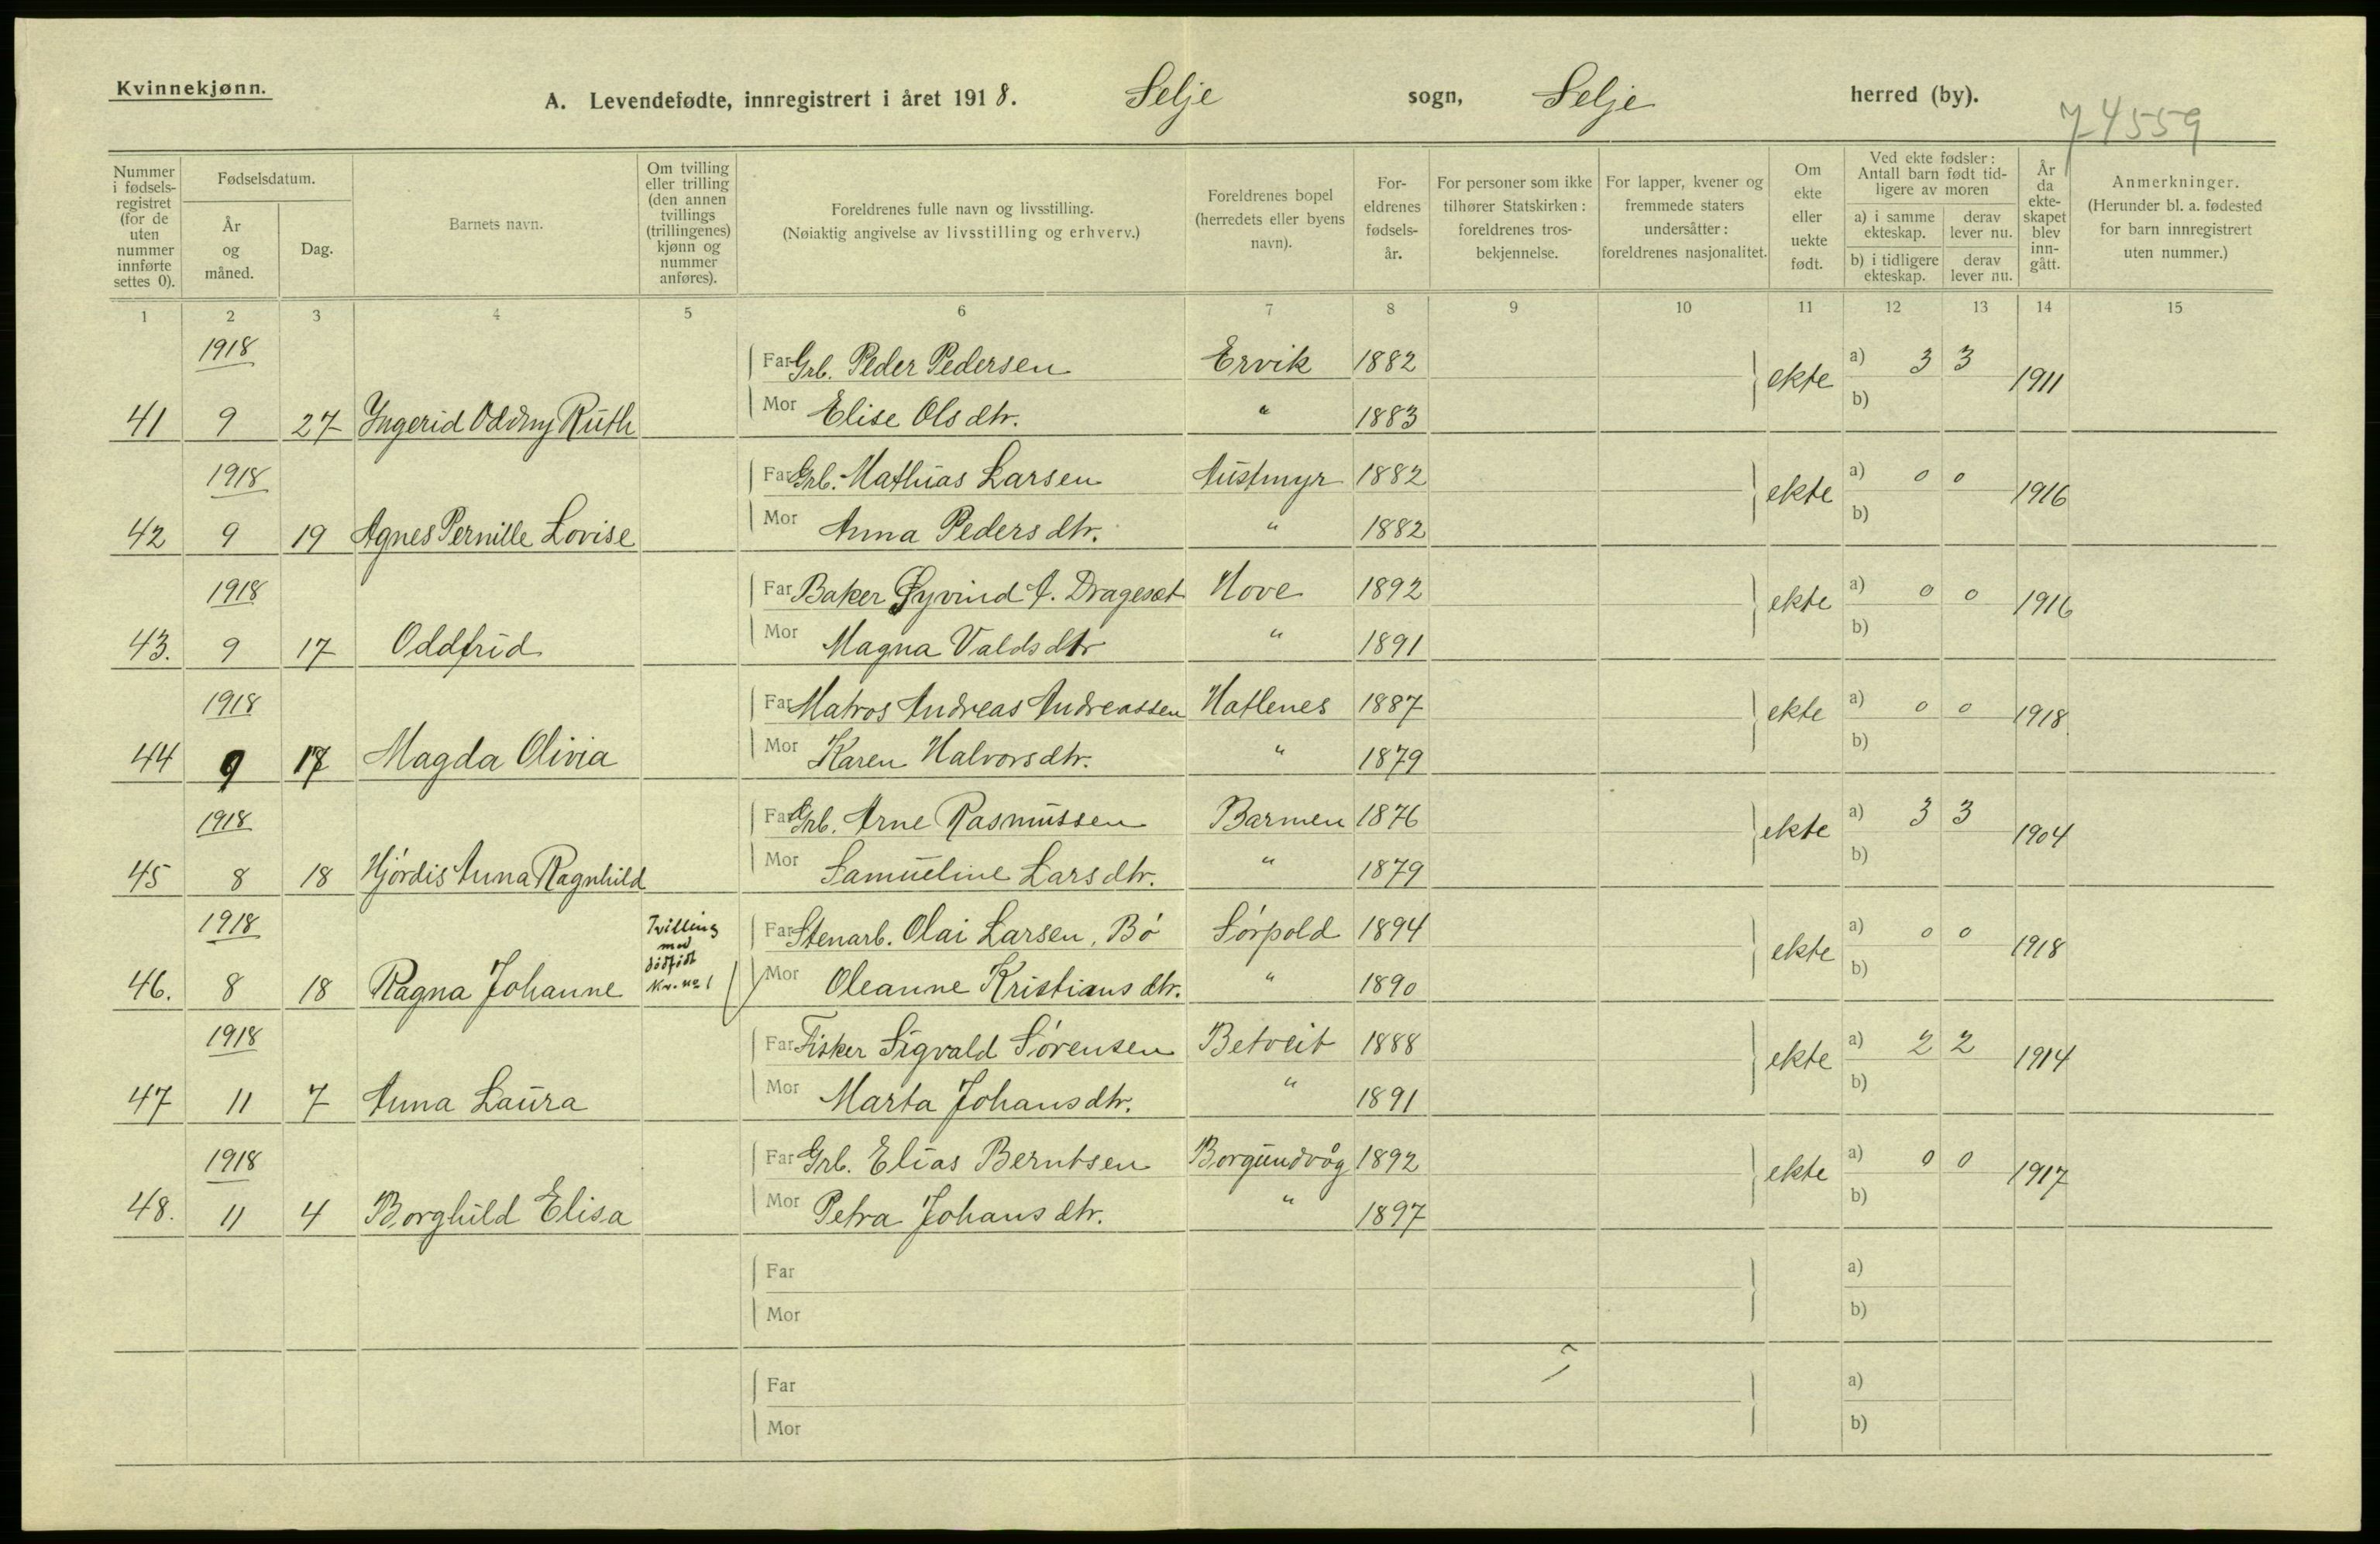 Kvinnekjønn.
A. Levendefødte, innregistrert i året 1918. Selje sogn, Selje herred (by).
74559
Nummer i fødsels-registret (for de uten nummer innførte settes 0).
Fødselsdatum.
År og måned.
Dag.
Barnets navn.
Om tvilling eller trilling (den annen tvillings (trillingenes) kjønn og nummer anføres).
Foreldrenes fulle navn og livsstilling. (Nøiaktig angivelse av livsstilling og erhverv.)
Foreldrenes bopel (herredets eller byens navn).
For-eldrenes fødsels-år.
For personer som ikke tilhører Statskirken: foreldrenes tros-bekjennelse.
For lapper, kvener og fremmede staters undersåtter: foreldrenes nasjonalitet.
Om ekte eller uekte født.
Ved ekte fødsler: Antall barn født tid-ligere av moren
a) i samme ekteskap. derav lever nu.
b) i tidligere ekteskap. derav lever nu.
År da ekte-skapet blev inn-gått.
Anmerkninger. (Herunder bl. a. fødested for barn innregistrert uten nummer.)
1 2 3 4 5 6 7 8 9 10 11 12 13 14 15
1918 Far Grb. Peder Pedersen Ervik 1882 ekte a) 3 3 1911
41 9 27 Yngerid Oddny Ruth Mor Elise Olsdtr. " 1883 b)
1918 Far Grb. Mathias Larsen Austmyr 1882 ekte a) 0 0 1916
42 9 19 Agnes Pernille Lovise Mor Anna Pedersdtr. " 1882 b)
1918 Far Baker Øyvind A. Drageset Hove 1892 ekte a) 0 0 1916
43. 9 17 Oddfrid Mor Magna Valdsdtr " 1891 b)
1918 Far Matros Andreas Andreassen Hatlenes 1887 ekte a) 0 0 1918
44 9 17 Magda Olivia Mor Karen Halvorsdtr. " 1879 b)
1918 Far Grb. Arne Rasmussen Barmen 1876 ekte a) 3 3 1904
45 8 18 Hjórdis Anna Ragnhild Mor Samueline Larsdtr. " 1879 b)
1918 Tvilling med dødfødt Kv. no 1 Far Stenarb. Olai Larsen, Bó Sórpold 1894 ekte a) 0 0 1918
46. 8 18 Ragna Johanne Mor Oleanne Kristiansdtr. " 1890 b)
1918 Far Fisker Sigvald Sórensen Betveit 1888 ekte a) 2 2 1914
47 11 7 Anna Laura Mor Marta Johansdtr. " 1891 b)
1918 Far Grb. Elias Berntsen Borgundvåg 1892 ekte a) 0 0 1917
48. 11 4 Borghild Elisa Mor Petra Johansdtr. " 1897 b)
Far a)
Mor b)
Far a)
Mor b)